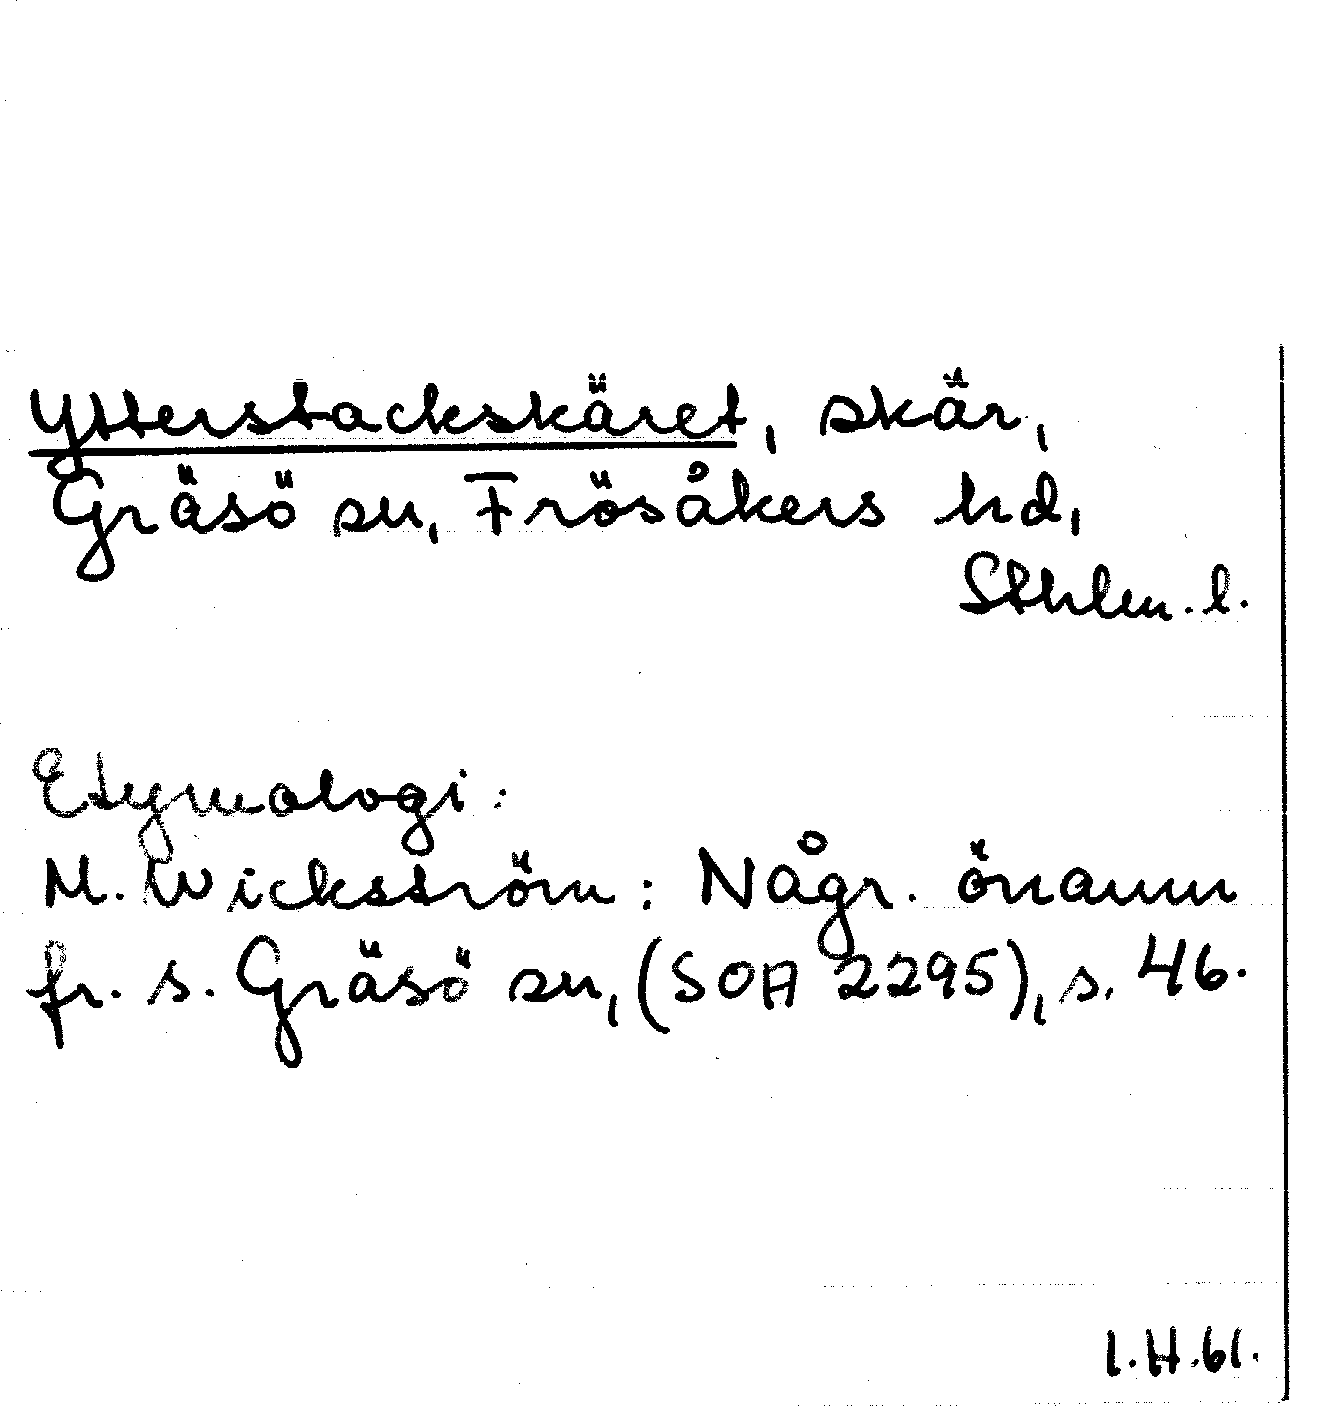 Ytterstackskäret, skär,
Gräsö sn, Frösåkers hd,
Sthlm. l.
Etymologi:
M. Wickström: Någr. önamn
fr. s. Gräsö sn, (SOA 2295), s. 46.
I.H.61.